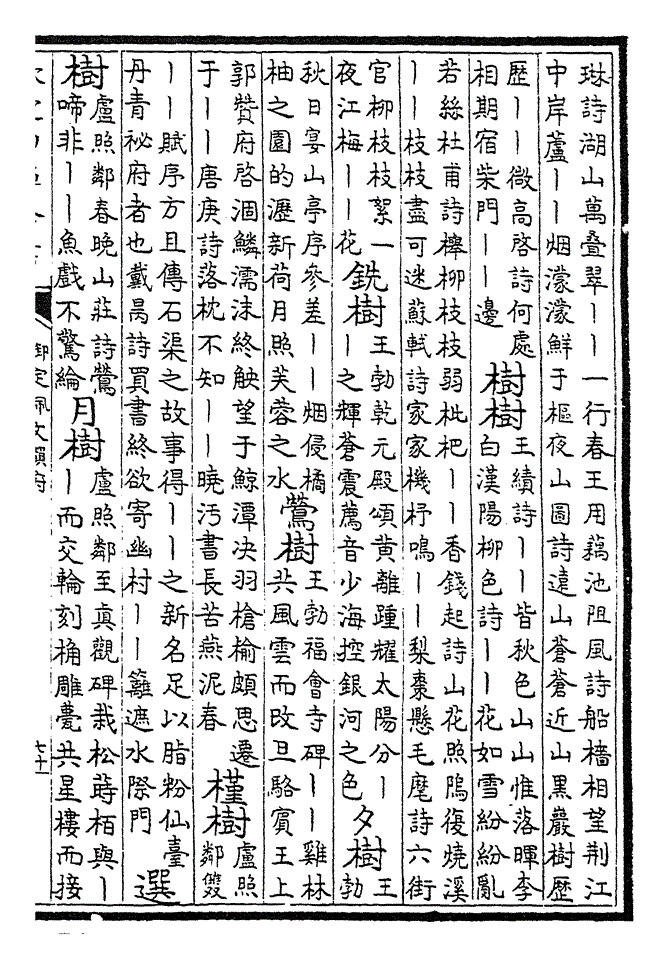 琳詩湖山萬叠翠丨丨一行春王用藕池阻風詩船檣相望荆江
中岸蘆丨丨烟濛濛鮮于樞夜山圖詩遠山蒼蒼近山黑巖樹歷
歷丨丨微高啓詩何處
相期宿柴門丨丨邊
樹樹
王績詩丨丨皆秋色山山惟落暉李
白漢陽柳色詩丨丨花如雪紛紛亂
若絲杜甫詩櫸柳枝枝弱枇杷丨丨香錢起詩山花照塢復燒溪
丨丨枝枝盡可迷蘇軾詩家家機杼鳴丨丨梨棗懸毛麾詩六街
官柳枝枝絮一
夜江梅丨丨花
銑樹
王勃乾元殿頌黄離踵耀太陽分丨
丨之輝蒼震薦音少海控銀河之色
夕樹
王
勃
秋日宴山亭序參差丨丨烟侵橘
柚之園的瀝新荷月照芙蓉之水
鶯樹
王勃福會寺碑丨丨雞林
共風雲而改旦駱賓王上
郭贊府啓涸鱗濡沫終觖望于鯨潭决羽槍榆頗思遷
于丨丨唐庚詩落枕不知丨丨曉汚書長苦燕泥春
槿樹
盧照
鄰雙
丨丨賦序方且傳石渠之故事得丨丨之新名足以脂粉仙臺
丹青祕府者也戴昺詩買書終欲寄幽村丨丨籬遮水際門
選
樹
盧照鄰春晚山莊詩鶯
啼非丨丨魚戲不驚綸
月樹
盧照鄰至真觀碑栽松蒔栢與丨
丨而交輪刻桷雕甍共星樓而接
御定佩文韻府